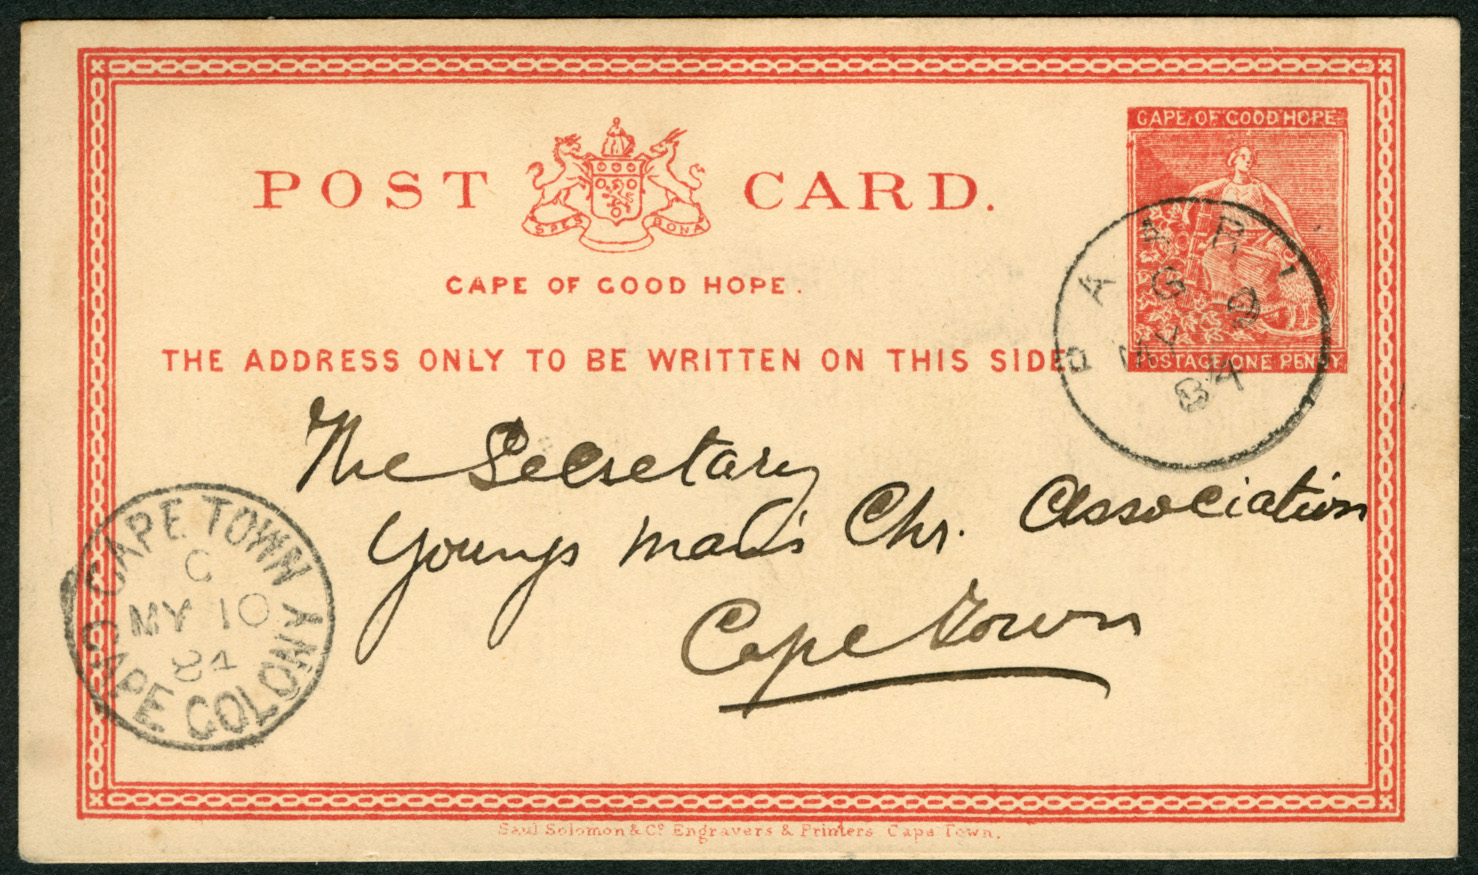 CAPE OF GOOD HOPE
POST CARD.
SPES BONA
CAPE OF GOOD HOPE.
THE ADDRESS ONLY TO BE WRITTEN ON THIS SIDE.
POSTAGE ONE PENNY.
PAARL
G 9
MY
84
The Secretary
Youngs man's Chr. Association
Cape Town
CAPE TOWN
C
MY 10
84
CAPE COLONY
Saul Solomon & Co. Engravers & Printers. Cape Town.